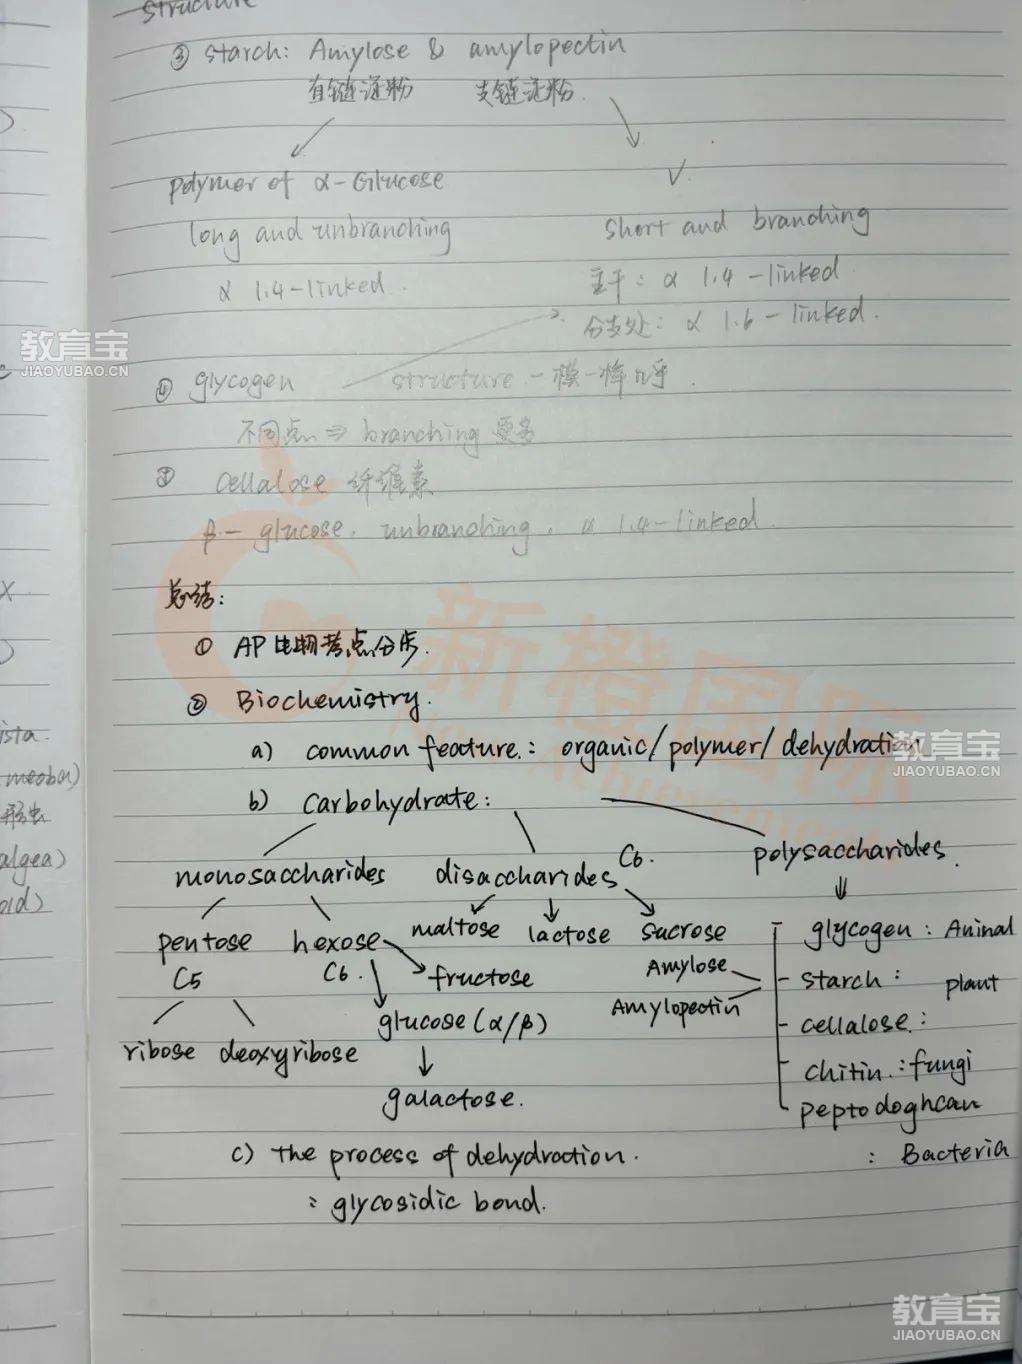 structure
③ starch: Amylose & amylopectin
直链淀粉 支链淀粉
polymer of α-Glucose
long and unbranching
α 1.4-linked.
short and branching
主干: α 1.4-linked
分支处: α 1.6-linked.
④ glycogen structure 一模一样
不同点 ⇒ branching 更多
cellalose 纤维素
β-glucose. unbranching. α 1.4-linked.
总结:
① AP生物考点分步.
② Biochemistry.
a) common feature: organic/polymer/dehydration
b) carbohydrate:
monosaccharides disaccharides C6. polysaccharides.
pentose hexose maltose lactose sucrose glycogen: Aninal
C5 C6. fructose Amylose starch: plant
glucose(α/β) Amylopectin cellalose:
ribose deoxyribose chitin.: fungi
galactose. peptodoghcan
c) the process of dehydraction. : Bacteria
: glycosidic bond.
ista.
algea)
oid)
新橙国际
教育宝
JIAOYUBAO.CN
教育宝
JIAOYUBAO.CN
教育宝
JIAOYUBAO.CN